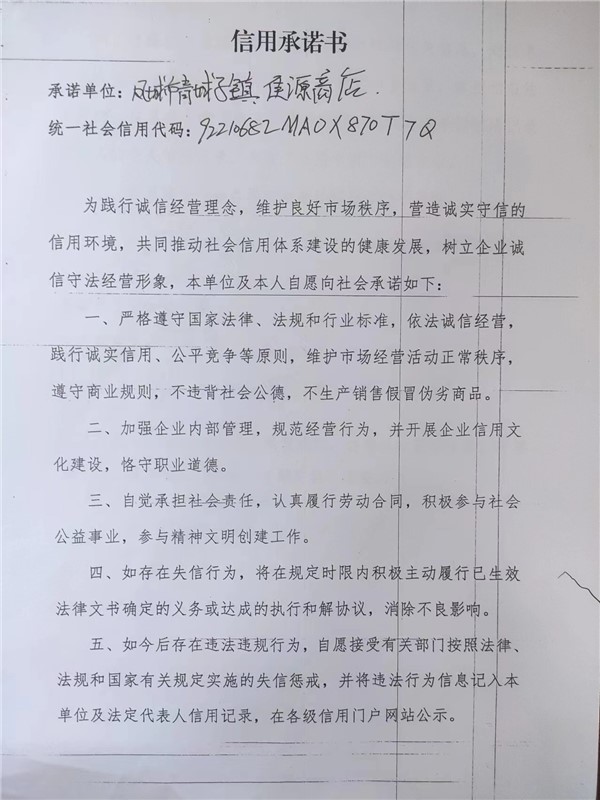 信用承诺书
承诺单位：凤城市青城子镇佳源商店.
统一社会信用代码：92210682MA0X870T7Q
为践行诚信经营理念，维护良好市场秩序，营造诚实守信的
信用环境，共同推动社会信用体系建设的健康发展，树立企业诚
信守法经营形象，本单位及本人自愿向社会承诺如下：
一、严格遵守国家法律、法规和行业标准，依法诚信经营，
践行诚实信用、公平竞争等原则，维护市场经营活动正常秩序，
遵守商业规则，不违背社会公德，不生产销售假冒伪劣商品。
二、加强企业内部管理，规范经营行为，并开展企业信用文
化建设，恪守职业道德。
三、自觉承担社会责任，认真履行劳动合同，积极参与社会
公益事业，参与精神文明创建工作。
四、如存在失信行为，将在规定时限内积极主动履行已生效
法律文书确定的义务或达成的执行和解协议，消除不良影响。
五、如今后存在违法违规行为，自愿接受有关部门按照法律、
法规和国家有关规定实施的失信惩戒，并将违法行为信息记入本
单位及法定代表人信用记录，在各级信用门户网站公示。